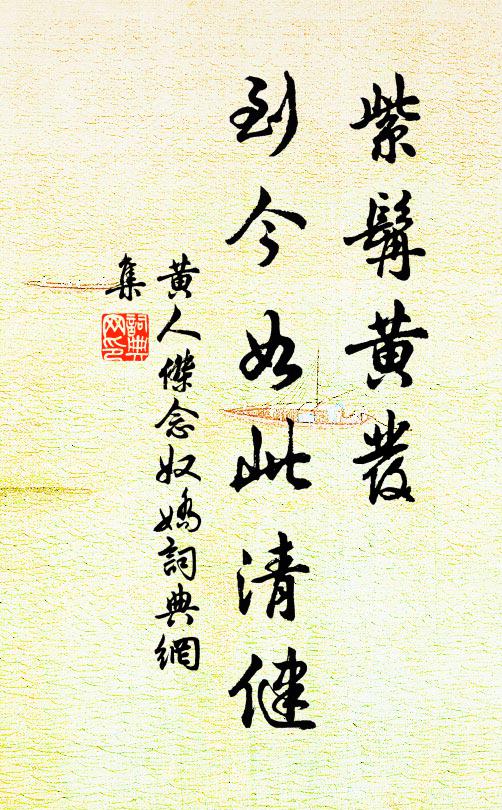 紫髯黄发
到今如此清健
黄人傑念奴嬌詞典網
集
詞典
网印